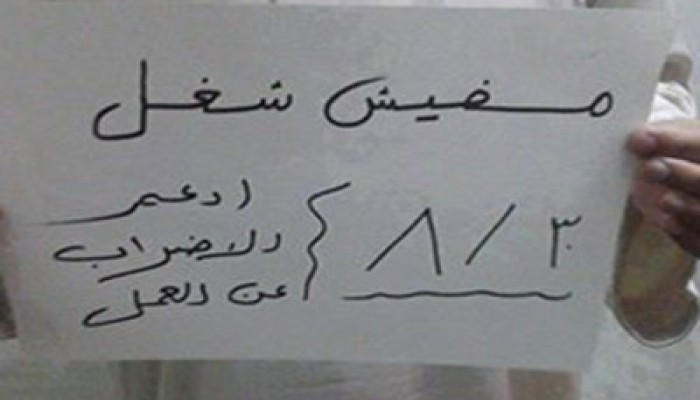 مفيش شغل
٣٠/٨
ادعم
الاضراب
عن العمل